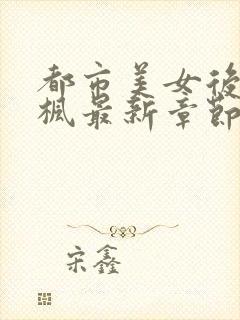 都市美女後
楓最新章節
宋鑫